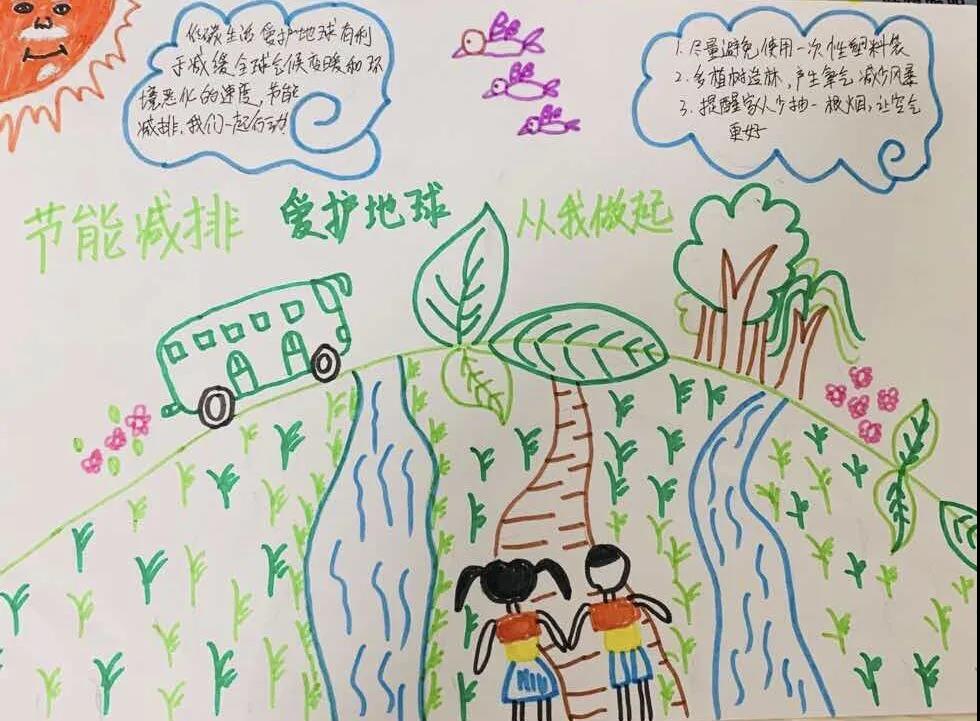 低碳生活爱护地球有利
于减缓全球气候变暖和环
境恶化的速度，节能
减排，我们一起行动
1. 尽量避免使用一次性塑料袋
2. 多植树造林，产生氧气，减少风暴
3. 提醒家人少抽一根烟，让空气
更好
节能减排 爱护地球 从我做起